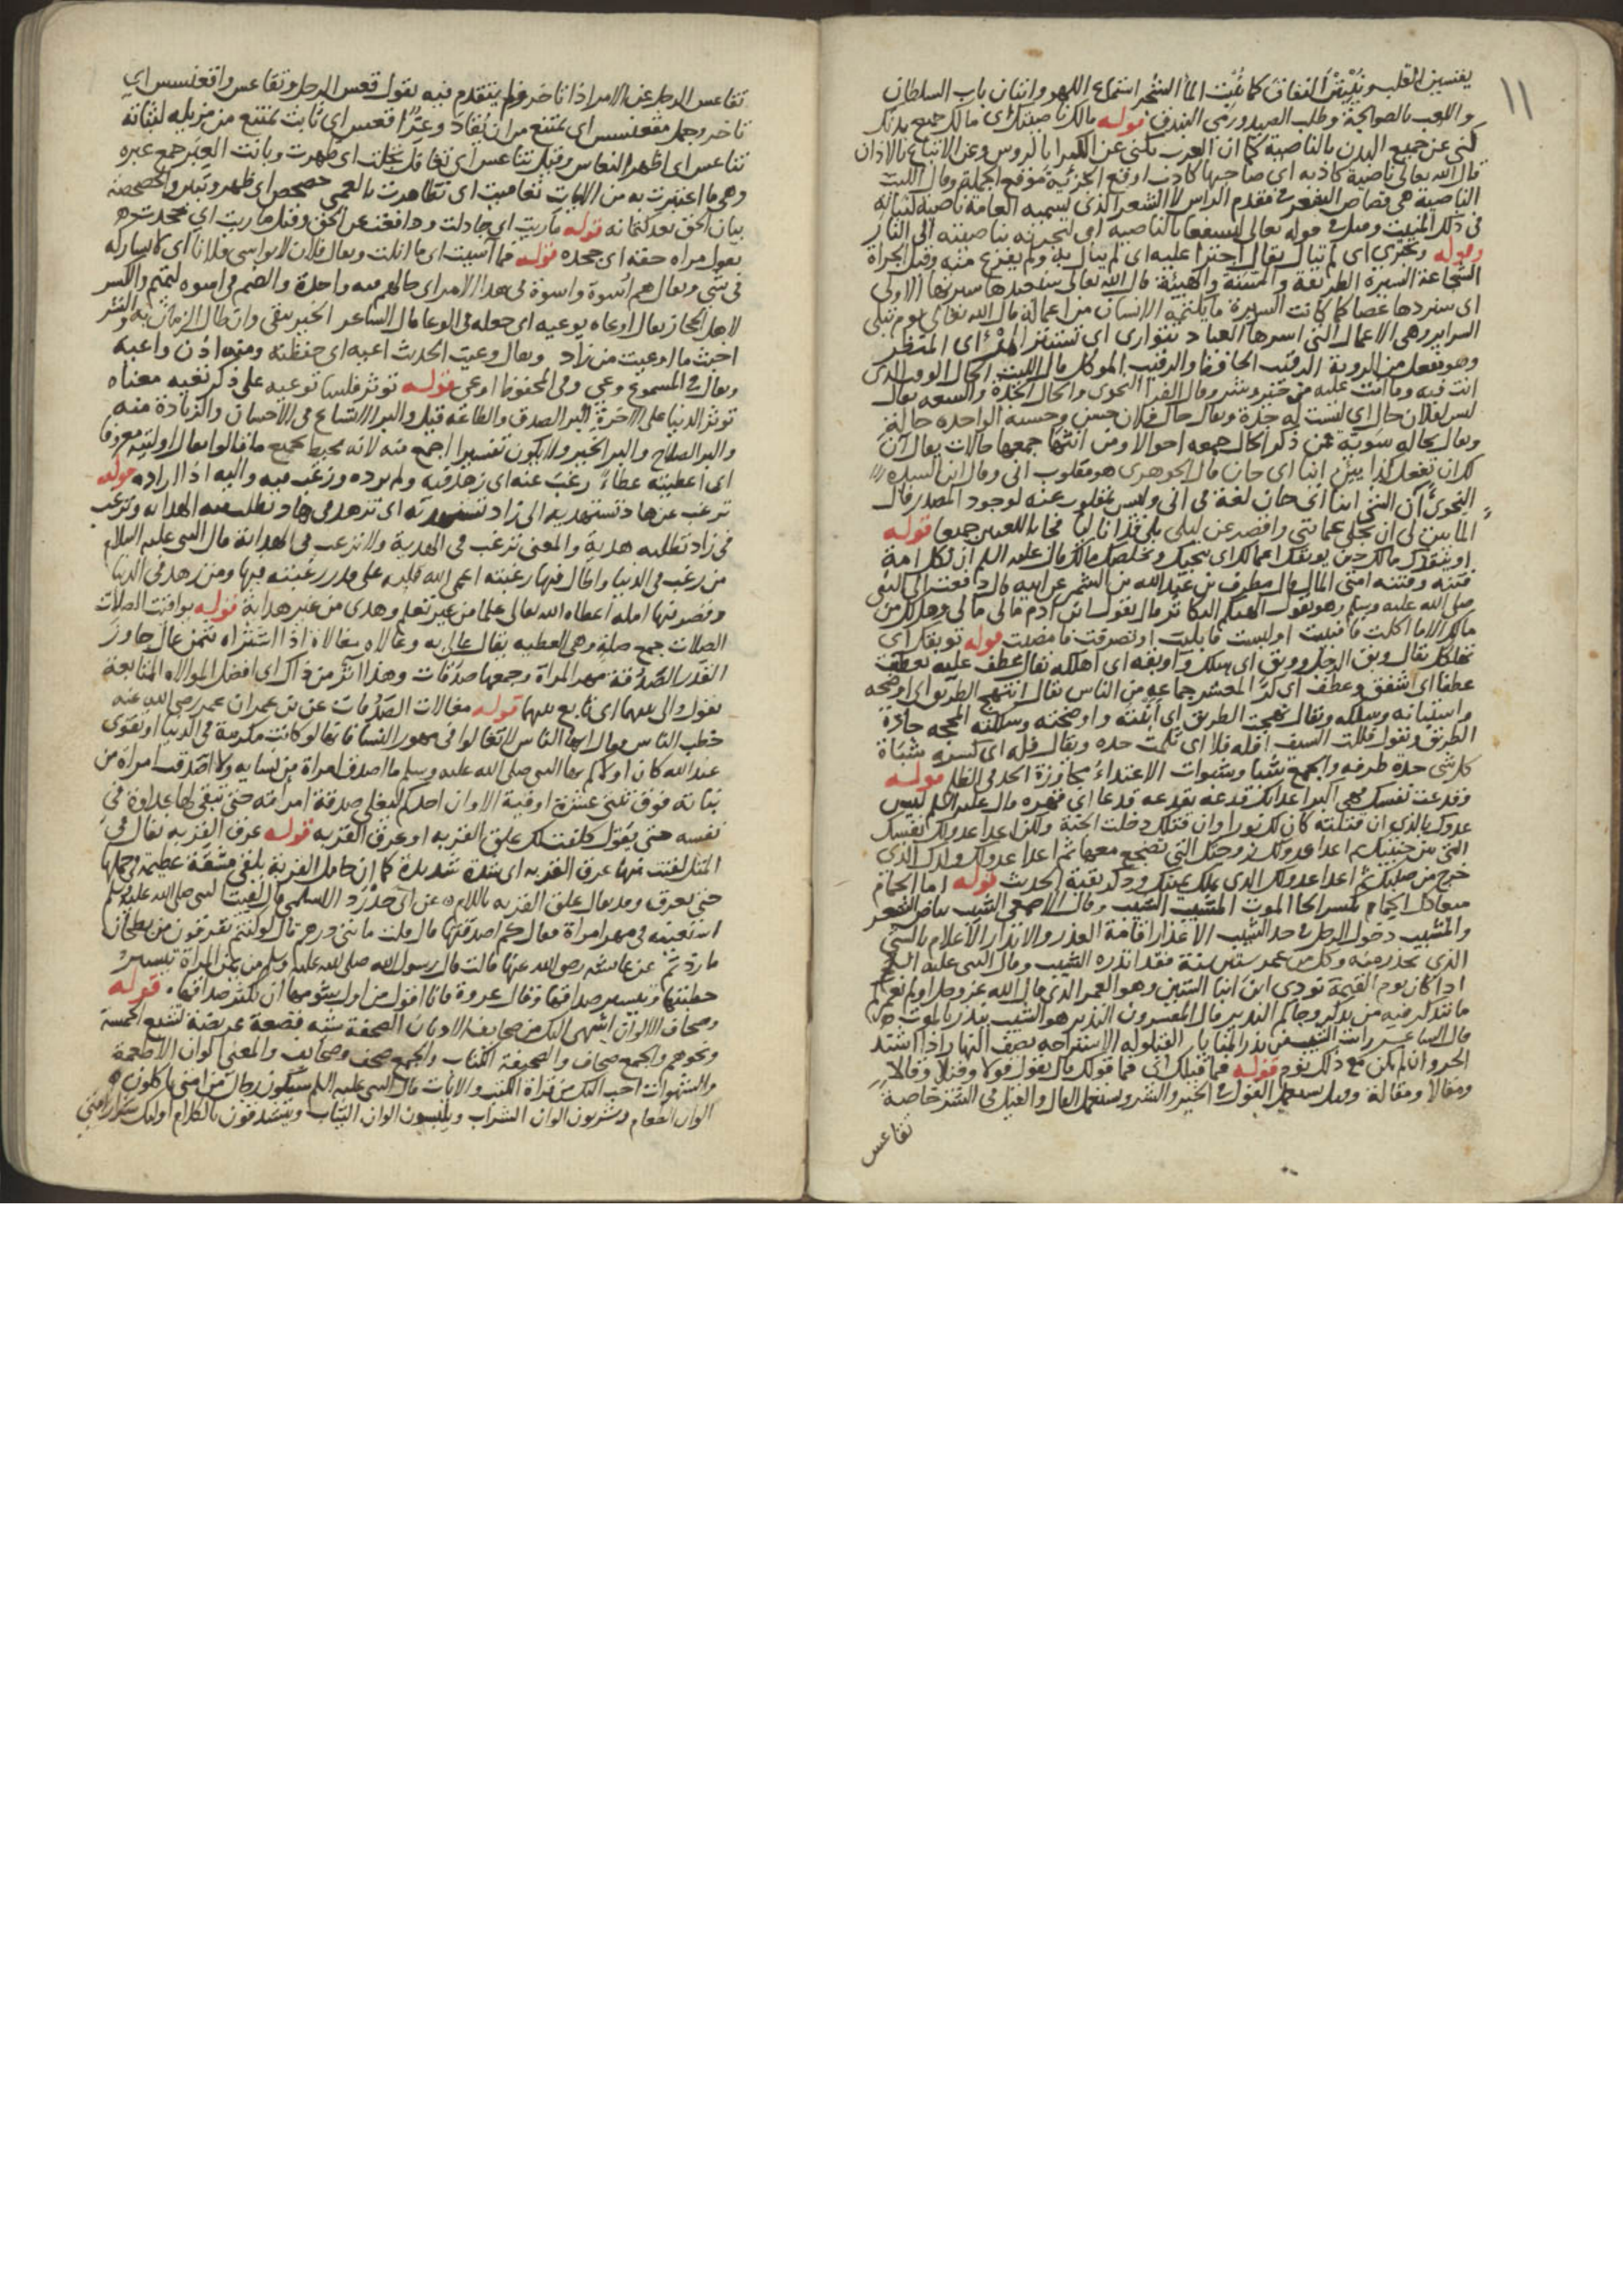 ١١
يفسين القلب وينبتن النفاق كما ينبت الما الشجر استماع اللهو واتيان باب السلطان
واللعب بالصوالجة وطلب الصيد ورمي البندق قوله مالك ناصيتك اي مالك جميع بدنك
كني عن جميع البدن بالناصية كما ان العرب تكني عن الكبرا بالروس وعن الاتباع بالاذان
قال الله تعالى ناصية كاذبه اي صاحبها كاذب اوقع الجزئية موقع الجملة وقال الليث
الناصية هي قصاص الشعر في مقدم الراس لا الشعر الذي تسميه العامة ناصية لنباته
في ذلك المنبت وقيل في قوله تعالى لنسفعا بالناصيه اي لنجرنه بناصيته الى النار
وقوله وتجتري اي لم تبال يقال اجترا عليه اي لم يبال به ولم يفزع منه وقيل الجراة
الشجاعة السيرة الطريقة والسنة والهيئة قال الله تعالى سنعيدها سيرتها الاولى
اي سنردها عصا كما كانت السريرة ما يكتمه الانسان من اعماله قال الله تعالى يوم تبلى
السراير وهي الاعمال التي اسرها العباد تتوارى اي تستتر اي المنظر
وهو مفعل من الروية الرقيب الحافظ والرقيب الموكل قال الليث الحال الوقت الذي
انت فيه وما انت عليه من خير وشر وقال الفرا النحوي والحال الجدة والسعه يقال
ليس لفلان حال اي ليست له جدة ويقال حال فلان حسن وحسنه الواحده حالة
ويقال بحالة سوية فمن ذكر الحال جمعه احوالا ومن انثها جمعها حالات يقال آن
لك ان تفعل كذا يئين اينا اي حان قال الجوهري هو مقلوب انى وقال ابن السيده
النحوي آن الشي اينا اي حان لغة في انى وليس بمقلوب عنه لوجود المصدر وقال
الما يئن لي ان تجلى عمايتي واقصر عن ليلى بلى قد انا ليا فجا باللغتين جميعا قوله
او ينقذك مالك حين توبقك اعمالك اي ينجيك ويخلصك مالك قال عليه السلم ان لكل امة
فتنه وفتنه امتي المال وقال مطرف بن عبد الله بن الشخير عن ابيه قال دفعت الى النبي
صلى الله عليه وسلم وهو يقول الهيكم التكاثر قال يقول ابن ادم مالي مالي وهل لك من
مالك الا ما اكلت فافنيت او لبست فابليت او تصرفت فامضيت قوله توبقك اي
تهلكك يقال وبق الرجل ووبق اي هلك واوبقه اي اهلكه يقال عطف عليه يعطف
عطفا اي اشفق وعطف اي كر المعشر جماعه من الناس يقال انتهج الطريق اي اوضحه
واستبانه وسلكه ويقال نهجت الطريق اي ابنته واوضحته وسلكته المحجه جادة
الطريق ويقول فللت السيف افله فلا اي ثلمت حده ويقال فله اي كسره شباة
كل شي حده طرفه والجمع شبا وشبوات الاعتداء مجاوزة الحد في الظلم قوله
وقدعت نفسك فهي اكبر اعدائك قدعته يقدعه قدعا اي قهره قال عليه السلم ليس
عدوك بالذي ان قتلته كان لك نورا وان قتلك دخلت الجنة ولكن اعدا عدوك نفسك
التي بين جنبيك ثم اعدا عدوك زوجتك التي تضجع معها ثم اعدا عدوك ولدك الذي
خرج من صلبك ثم اعدا عدوك الذي ملك يمينك وذكر بقية الحديث قوله اما الحمام
ميعادك الحمام بكسر الحا الموت المشيب الشيب وقال الاصمعي الشيب بياض الشعر
والمشيب دخول الرجل في حد الشيب الاعذار اقامة العذر والانذار الاعلام بالشي
الذي يحذر منه وكل من عمر ستين سنة فقد انذره الشيب وقال النبي عليه السلم
اذا كان يوم القيمة نودي اين ابنا الستين وهو العمر الذي قال الله عز وجل اولم نعمركم
ما يتذكر فيه من تذكر وجاكم النذير قال المفسرون النذير هو الشيب ينذر بالموت
قال الشاعر رايت الشيب من نذر المنايا القيلوله الاستراحه نصف النهار اذا اشتد
الحر وان لم يكن مع ذلك نوم قوله فما قيلك اي فما قولك يقال يقول قولا وقيلا وقالا
ومقالا ومقالة وقيل يستعمل القول في الخير والشر ويستعمل القال والقيل في الشر خاصة
تقاعس
تقاعس الرجل عن الامر اذا تاخر ولم يتقدم فيه يقول قعس الرجل وتقاعس واقعنسس اي
تاخر وجمل مقعنسس اي يمتنع من ان يقاد وعزا قعس اي ثابت يمتنع من مزيله لثباته
تناعس اي اظهر النعاس وقيل تناعس اي تغافل تجلت اي ظهرت وبانت العبر جمع عبره
وهي ما اعتبرت به من الايات تعاميت اي تظاهرت بالعمى حصحص اي ظهر وتبين والحصحصة
بيان الحق بعد كتمانه قوله ماريت اي جادلت ودافعت عن الحق وقيل ماريت اي جحدت
يقول مراه حقه اي جحده قوله فما آسيت اي ما انلت ويقال فلان لا يواسي فلانا اي لا يشاركه
في شي ويقال هم اسوة واسوة في هذا الامر اي حالهم فيه واحدة والضم في اسوه لتميم والكسر
لاهل الحجاز يقال اوعاه يوعيه اي جعله في الوعا قال الشاعر الخير يبقى وان طال الزمان به والشر
اخبث ما اوعيت من زاد ويقال وعيت الحديث اعيه اي حفظته ومنه اذن واعيه
ويقال في المسموع وعي وفي المحفوظ اوعى قوله توثر فلسا توعيه على ذكر تعيه معناه
توثر الدنيا على الاخرة البر الصدق والطاعه قيل والبر الاتساع في الاحسان والزيادة منه
والبر الصلاح والبر الخير ولا يكون تفسيرا اجمع منه لانه يحيط بجميع ما قالوا يقال اوليته معروفا
اي اعطيته عطاء رغب عنه اي زهد فيه ولم يرده ورغب فيه واليه اذا اراده قوله
ترغب عن هاد تستهديه الى زاد تستهديه اي تزهد في هاد تطلب منه الهدايه وترغب
في زاد تطلبه هدية والمعنى ترغب في الهدية ولا ترغب في الهداية قال النبي عليه السلام
من رغب في الدنيا واطال فيها رغبته اعمى الله قلبه على قدر رغبته فيها ومن زهد في الدنيا
وقصر فيها امله اعطاه الله تعالى علما من غير تعلم وهدى من غير هداية قوله يواقيت الصلات
الصلات جمع صلة وهي العطيه يقال غالى به وغالاه مغالاة اذا اشتراه بثمن غال جاوز
القدر الصدقة مهر المراة وجمعها صدقات وهذا اثر من ذاك اي افضل الموالاة المتابعة
يقول والى بينهما اي تابع بينهما قوله مغالات الصدقات عن بن عمر ان عمر رضي الله عنه
خطب الناس فقال ايها الناس لا تغالوا في مهور النسا فانها لو كانت مكرمة في الدنيا او تقوى
عند الله كان اولاكم بها النبي صلى الله عليه وسلم ما اصدق امراة من نسايه ولا اصدقت امراة من
بناته فوق ثنتي عشرة اوقية الا وان احدكم ليغلي صدقة امراته حتى تبقى لها عداوة في
نفسه حتى يقول كلفت لك علق القربه او عرق القربه قوله عرق القربه يقال في
المثل لقيت منها عرق القربه اي شدة شديدة كما ان حامل القربة يلقى مشقة عظيمة في حملها
حتى يعرق وقد يقال علق القربه باللام عن ابي حدرد الاسلمي قال لقيت النبي صلى الله عليه وسلم
استعينه في مهر امراة فقال كم اصدقتها قال قلت ما يتي درهم قال لو كنتم تغرفون من بطحان
ما زدتم عن عايشه رضي الله عنها قالت قال رسول الله صلى الله عليه وسلم من يمن المراة تيسير
خطبتها وتيسير صداقها وقال عروة وانا اقول من اول شومها ان يكثر صداقها قوله
وصحاف الالوان اشهى اليك من صحايف الاديان الصحفة شبه قصعة عريضة تشبع الخمسة
ونحوهم والجمع صحاف والصحيفة الكتاب والجمع صحف وصحايف والمعنى الوان الاطعمة
والشهوات احب اليك من قراة الكتب والايات قال النبي عليه السلم سيكون رجال من امتي ياكلون
الوان الطعام ويشربون الوان الشراب ويلبسون الوان الثياب ويتشدقون بالكلام اوليك شرار امتي